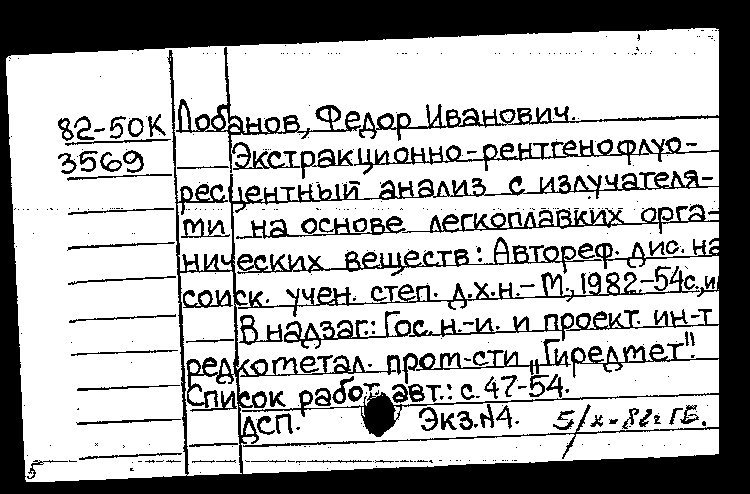 82-50К Лобанов, Федор Иванович.
3569 Экстракционно-рентгенофлуо-
ресцентный анализ с излучателя-
ми на основе легкоплавких орга-
нических веществ: Автореф. дис. на
соиск. учен. степ. д.х.н.- М., 1982.-54с., ил
В надзаг.: Гос. н.-и. и проект. ин-т
редкометал. пром-сти „Гиредмет".
Список работ авт.: с. 47-54.
ДСП. Экз.N4. 5/х-82г ГБ.
5